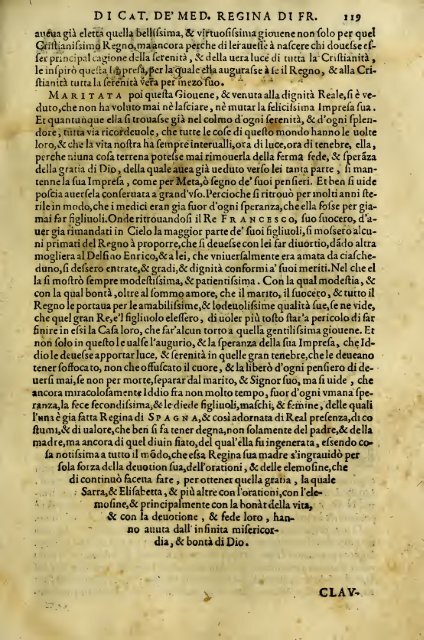 DI CAT. DE' MED. REGINA DI FR. 119
aueua già eletta quella bellissima, & virtuosissima giouene non solo per quel
Cristianissimo Regno, ma ancora perche di lei auesse à nascere chi douesse es-
ser principal cagione della serenità, & della uera luce di tutta la Cristianità,
le inspirò questa Impresa, per la quale ella augurasse à se il Regno, & alla Cri-
stianità tutta la serenità vera per mezo suo.
MARITATA poi questa Giouene, & venuta alla dignità Reale, si è ve-
duto, che non ha voluto mai nè lasciare, nè mutar la felicissima Impresa sua.
Et quantunque ella si trouasse già nel colmo d'ogni serenità, & d'ogni splen-
dore, tutta via ricordeuole, che tutte le cose di questo mondo hanno le uolte
loro, & che la vita nostra ha sempre interualli, ora di luce, ora di tenebre, ella,
perche niuna cosa terrena potesse mai rimouerla della ferma fede, & sperãza
della gratia di Dio, della quale auea già ueduto verso lei tanta parte, si man-
tenne la sua Impresa, come per Meta, ò segno de' suoi pensieri. Et ben si uide
poscia auersela conseruata a grand'vso. Percioche si ritrouò per molti anni ste-
rile in modo, che i medici eran già fuor d'ogni speranza, che ella fosse per gia-
mai far figliuoli. Onde ritrouandosi il Re FRANCESCO, suo suocero, d'a-
uer gia rimandati in Cielo la maggior parte de' suoi figliuoli, si mossero alcu-
ni primati del Regno à proporre, che si deuesse con lei far diuortio, dãdo altra
mogliera al Delfino Enrico, & a lei, che vniuersalmente era amata da ciasche-
duno, si dessero entrate, & gradi, & dignità conformi a' suoi meriti. Nel che el
la si mostrò sempre modestissima, & patientissima. Con la qual modestia, &
con la qual bontà, oltre al sommo amore, che il marito, il suocero, & tutto il
Regno le portaua per le amabilissime, & lodeuolissime qualità sue, se ne vide,
che quel gran Re, e'l figliuolo elessero, di uoler più tosto star'a pericolo di far
finire in essi la Casa loro, che far'alcun torto a quella gentilissima giouene. Et
non solo in questo le ualse l'augurio, & la speranza della sua Impresa, che Id-
dio le deuesse apportar luce, & serenità in quelle gran tenebre, che le deueano
tener soffocato, non che offuscato il cuore, & la liberò d'ogni pensiero di de-
uersi mai, se non per morte, separar dal marito, & Signor suo, ma si uide, che
ancora miracolosamente Iddio fra non molto tempo, fuor d'ogni vmana spe-
ranza, la fece secondissima, & le diede figliuoli, maschi, & femine, delle quali
l'una è gia fatta Regina di SPAGNA, & così adornata di Real presenza, di co
stumi, & di ualore, che ben si fa tener degna, non solamente del padre, & della
madre, ma ancora di quel diuin fiato, del qual'ella fu ingenerata, essendo co-
sa notissima a tutto il mõdo, che essa Regina sua madre s'ingrauidò per
sola forza della deuotion sua, dell'orationi, & delle elemosine, che
di continuò faceua fare, per ottener quella gratia, la quale
Sarra, & Elisabetta, & più altre con l'orationi, con l'ele-
mosine, & principalmente con la bontà della vita,
& con la deuotione, & fede loro, han-
no auuta dall'infinita misericor-
dia, & bontà di Dio.
CLAV-